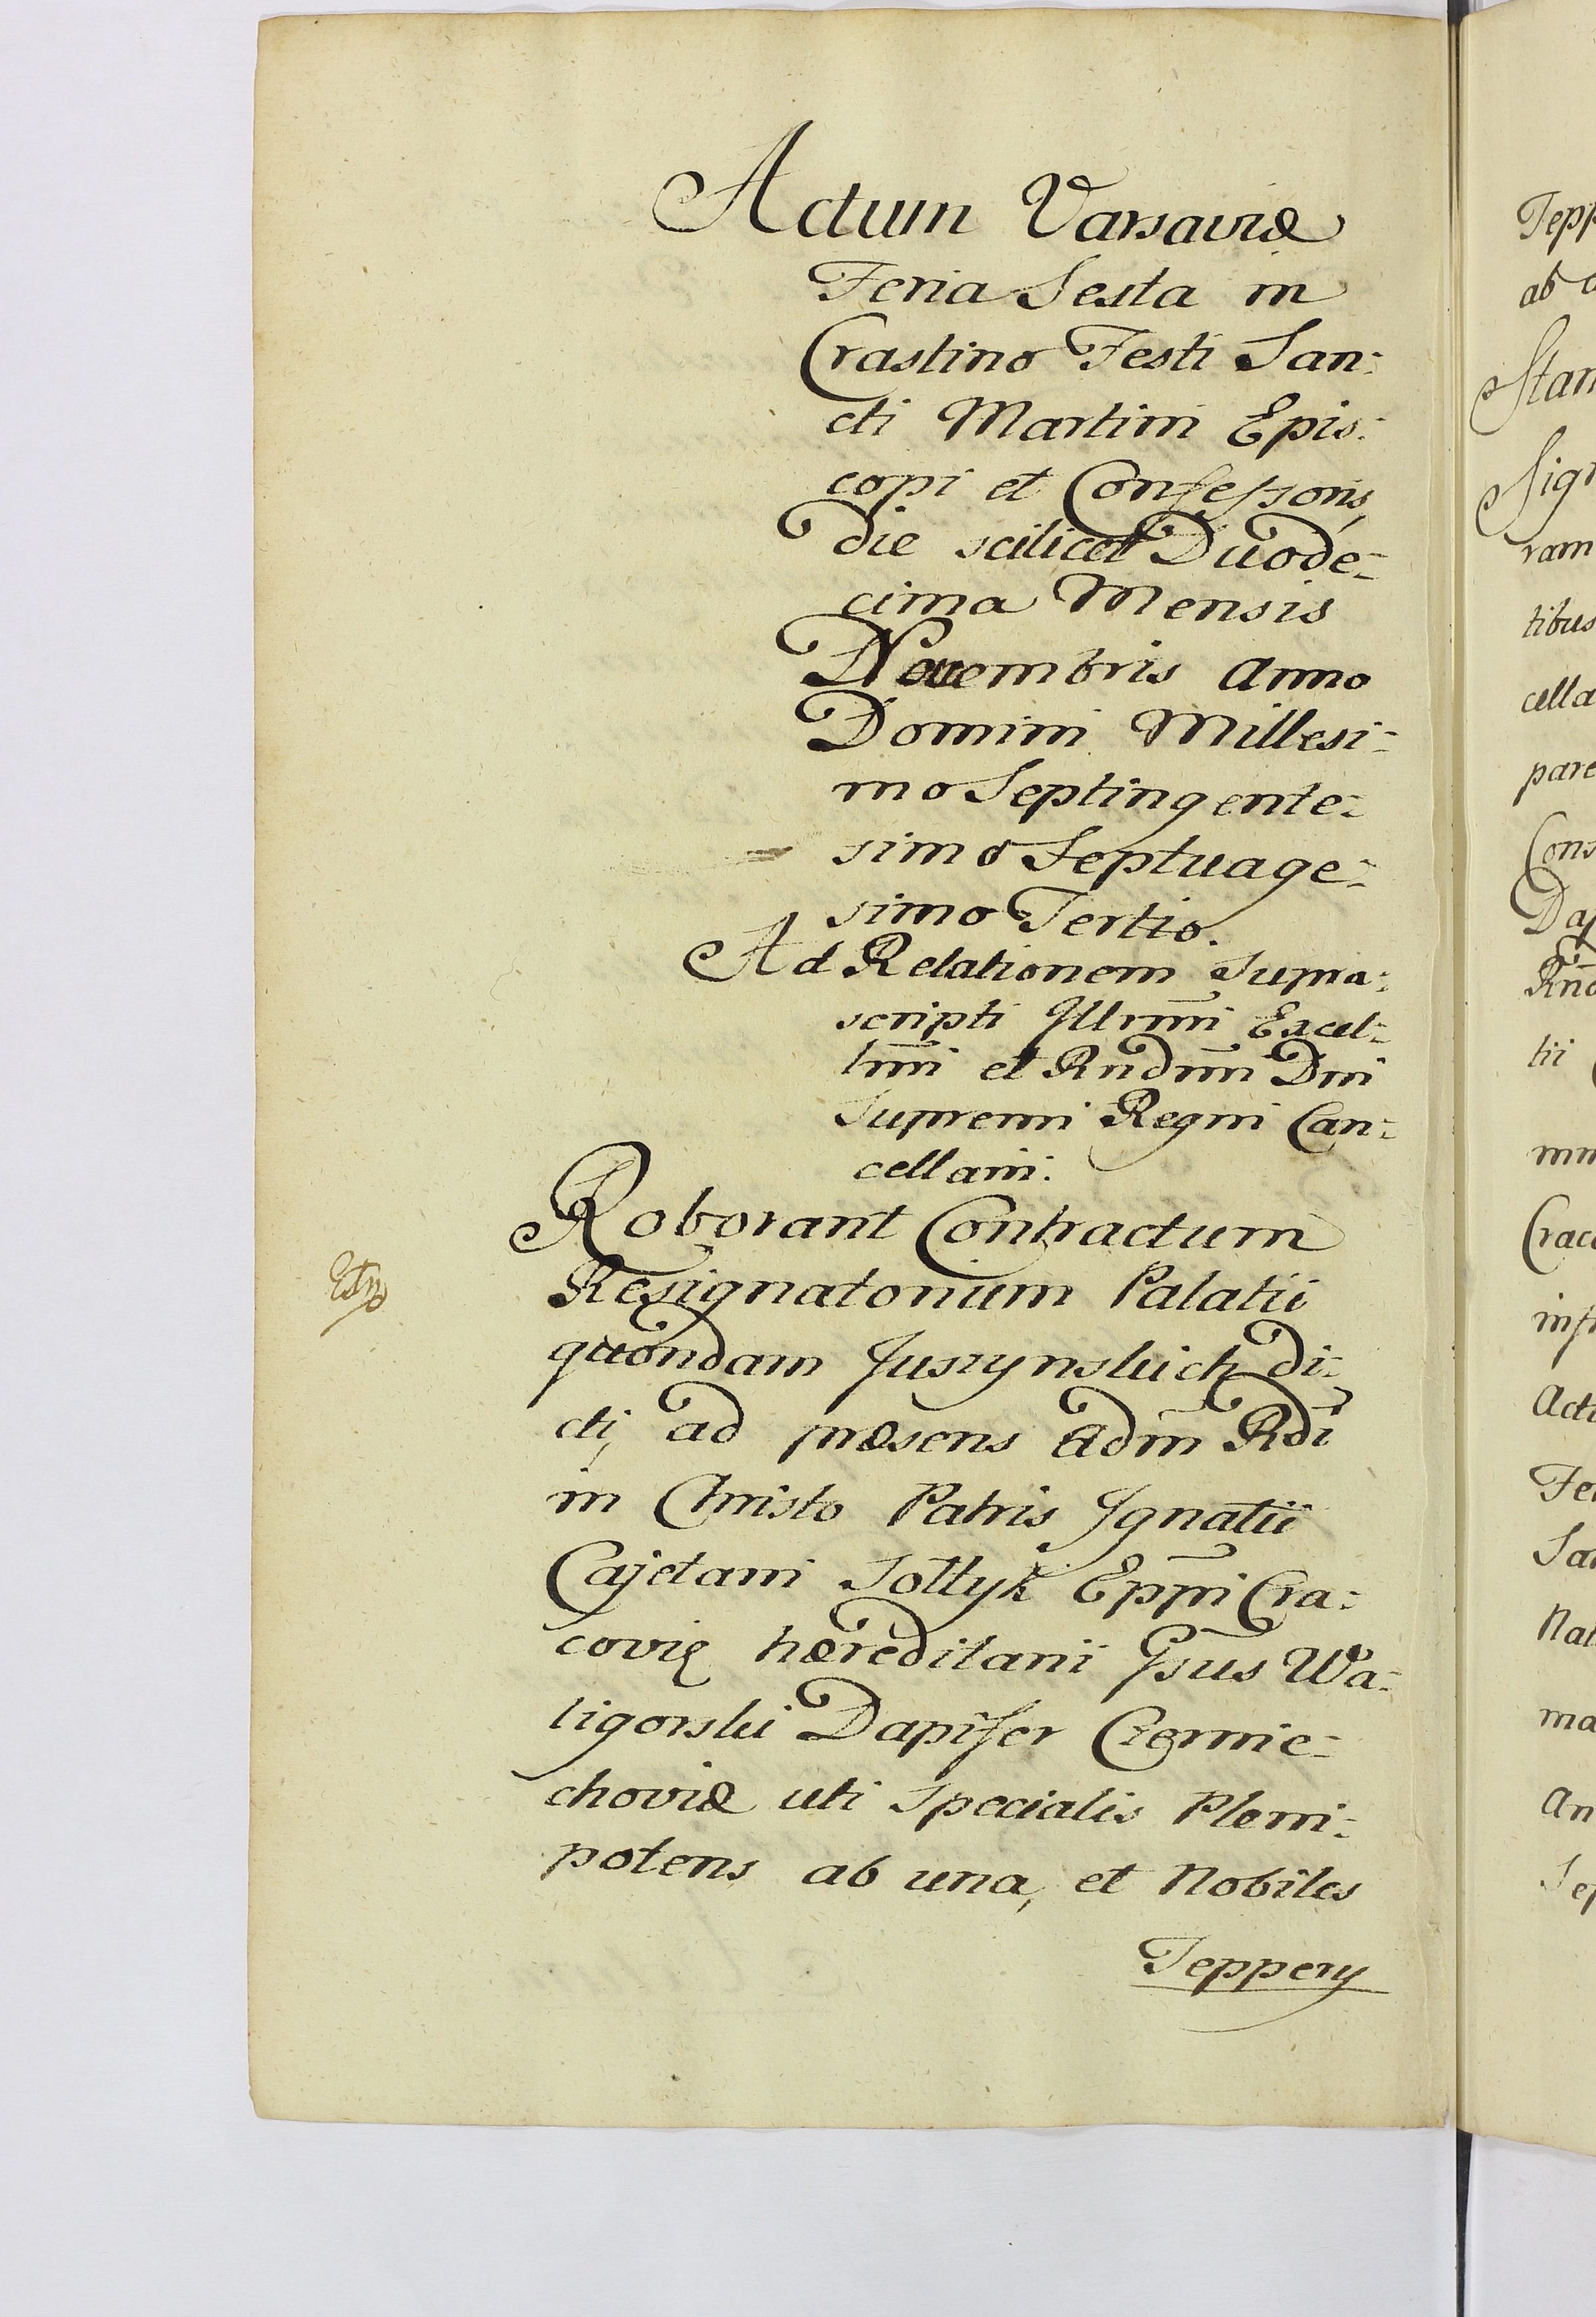 Actum Varsaviæ
Feria Sexta in
Crastino Festi San:
cti Martini Epis:
copi et Confessoris,
die scilicet Duode:
cima Mensis
Novembris Anno
Domini Millesi:
mo Septingente:
simo Septuage:
simo Tertio.
Ad Relationem Supra:
scripti Illrmi Excel:
lmi et Rndmi Dni
Supremi Regni Can:
cellarii.
Roborant Contractum
Resignatorium Palatii
quondam Juszynskich di:
cti, ad præsens Adm Rdi
in Christo Patris Ignatii
Cajetani Sołtyk Eppi Cra:
covię hæreditarii Gsus Wa:
ligorski Dapifer Czernie:
choviæ uti Specialis Pleni:
potens ab una, et Nobiles
Teppery
Tepp
ab
Stan
Sign
ram
tibus
cella
pare
Cons
Dap
tii
Crac
inf
Actu
Fer
San
Nat
ma
An
Sep